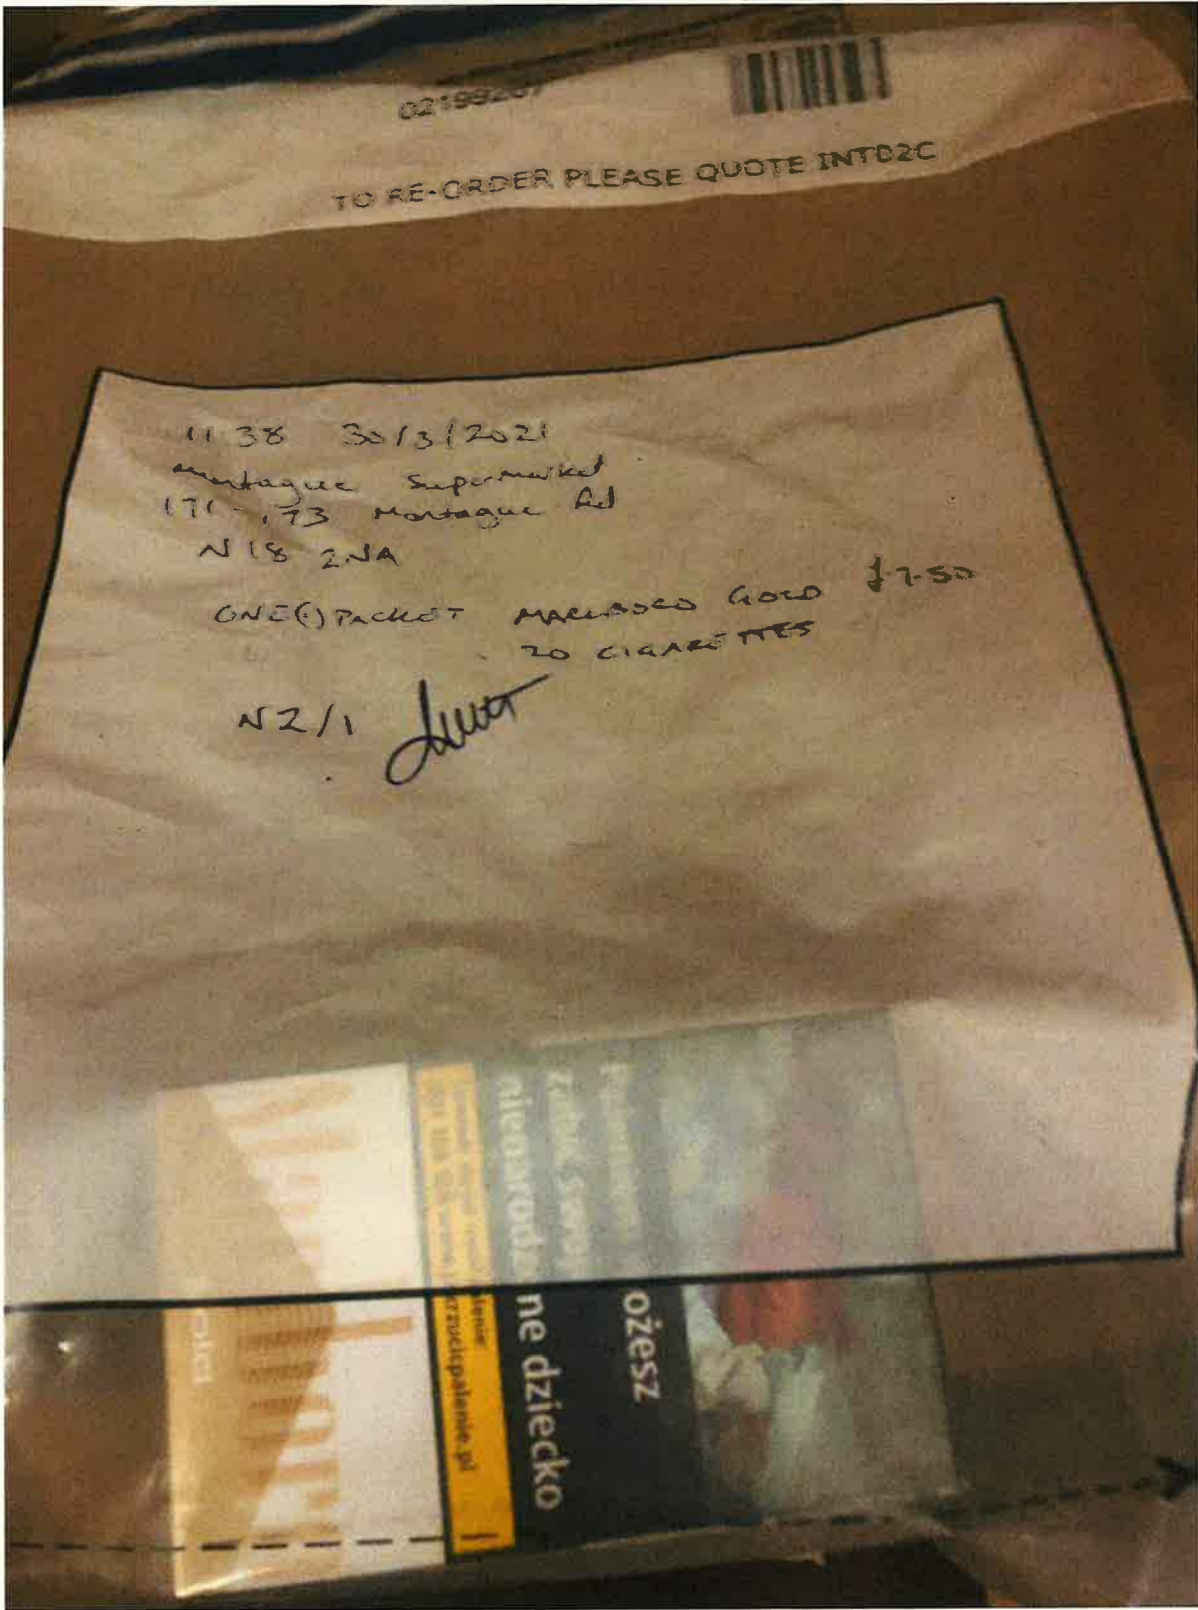 02199267
TO RE-ORDER PLEASE QUOTE INTD2C
11 38 30/3/2021
Montague Supermarket
171-173 Montague Rd
N18 2NA
ONE(1) PACKET MARLBORO GOLD £7.50
20 CIGARETTES
N2/1
ożesz
nienarodzone dziecko
rzucicpalenie.pl